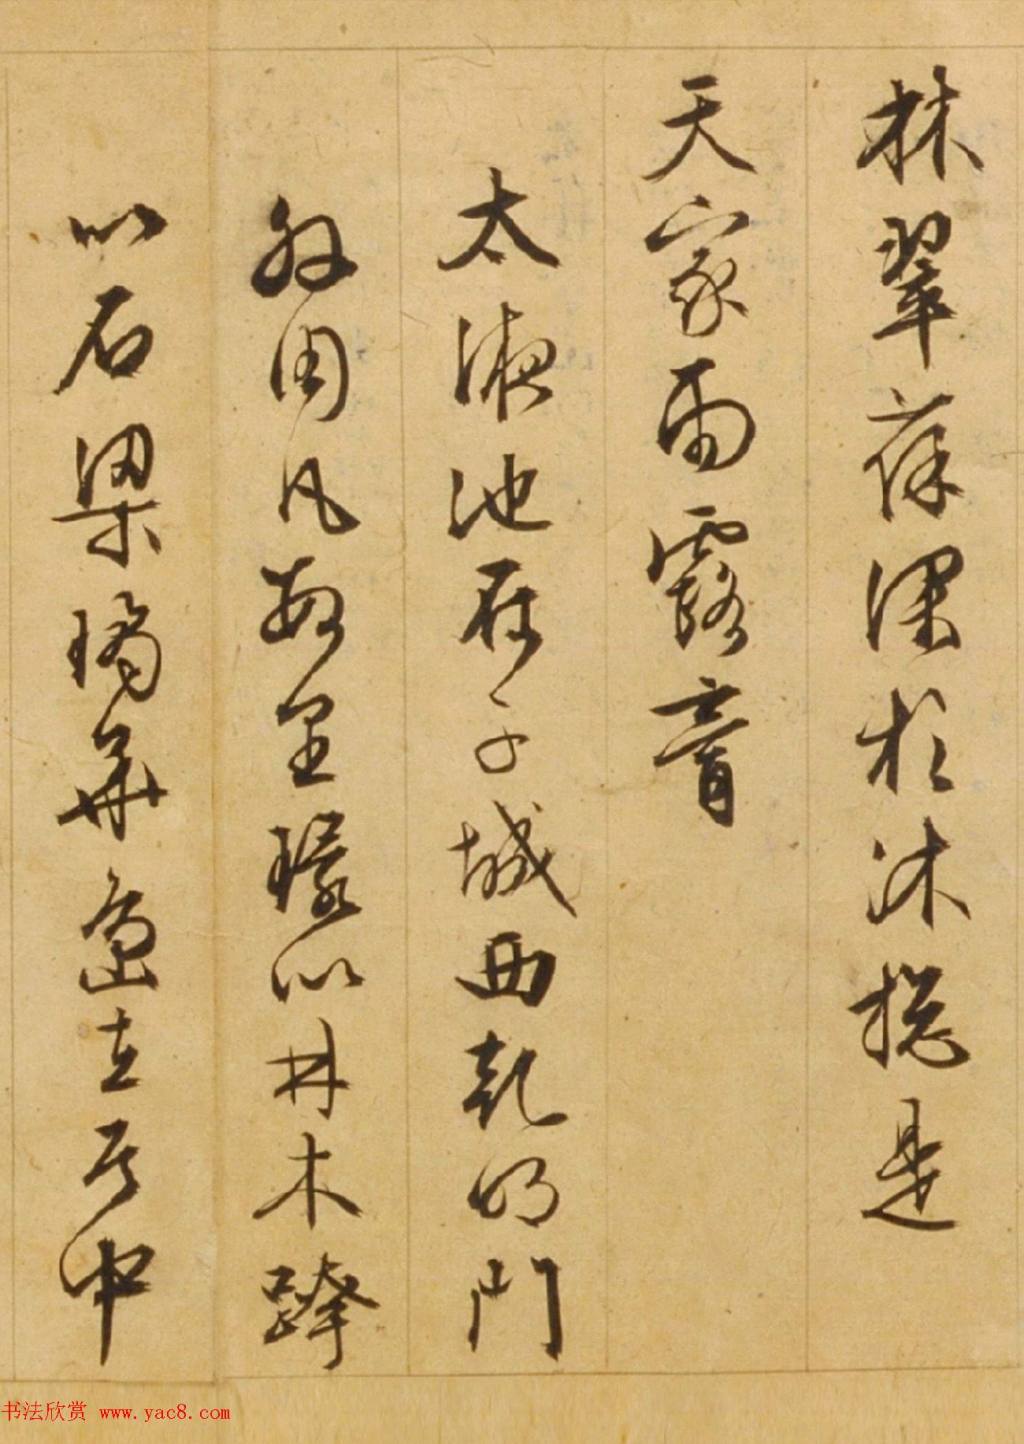 林翠葆深於沐揔是
天家雨露膏
太液池在子城西乾明門
外周凡數里環以林木跨
以石梁瓊華島在其中
书法欣赏 www.yac8.com